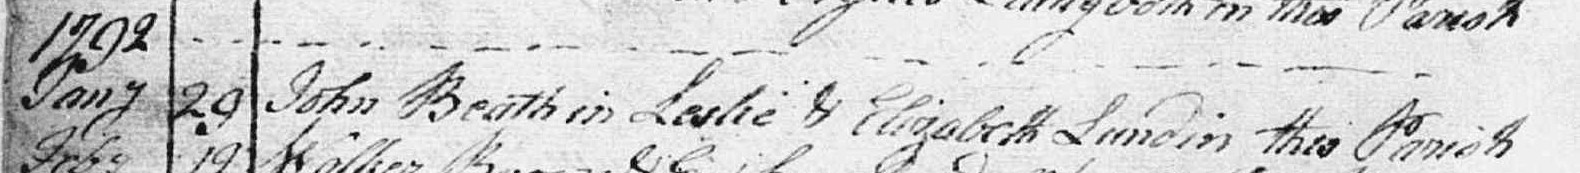 in this Parish
1792
Jany 29 John Beath in Leslie & Elizabeth Lundin this Parish
Feby 19 Walker